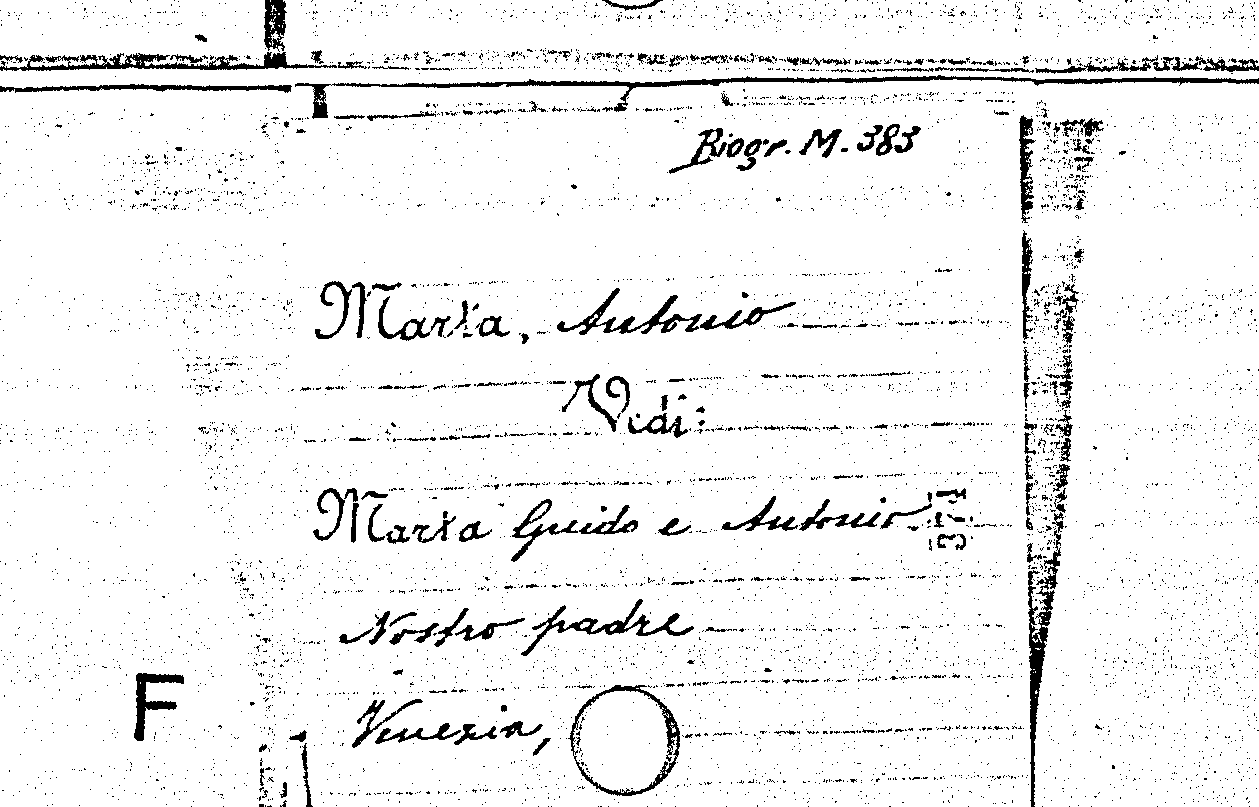 Biogr. M. 383
Marta, Antonio
Vedi:
Marta Guido e Antonio
Nostro padre
F
Venezia,